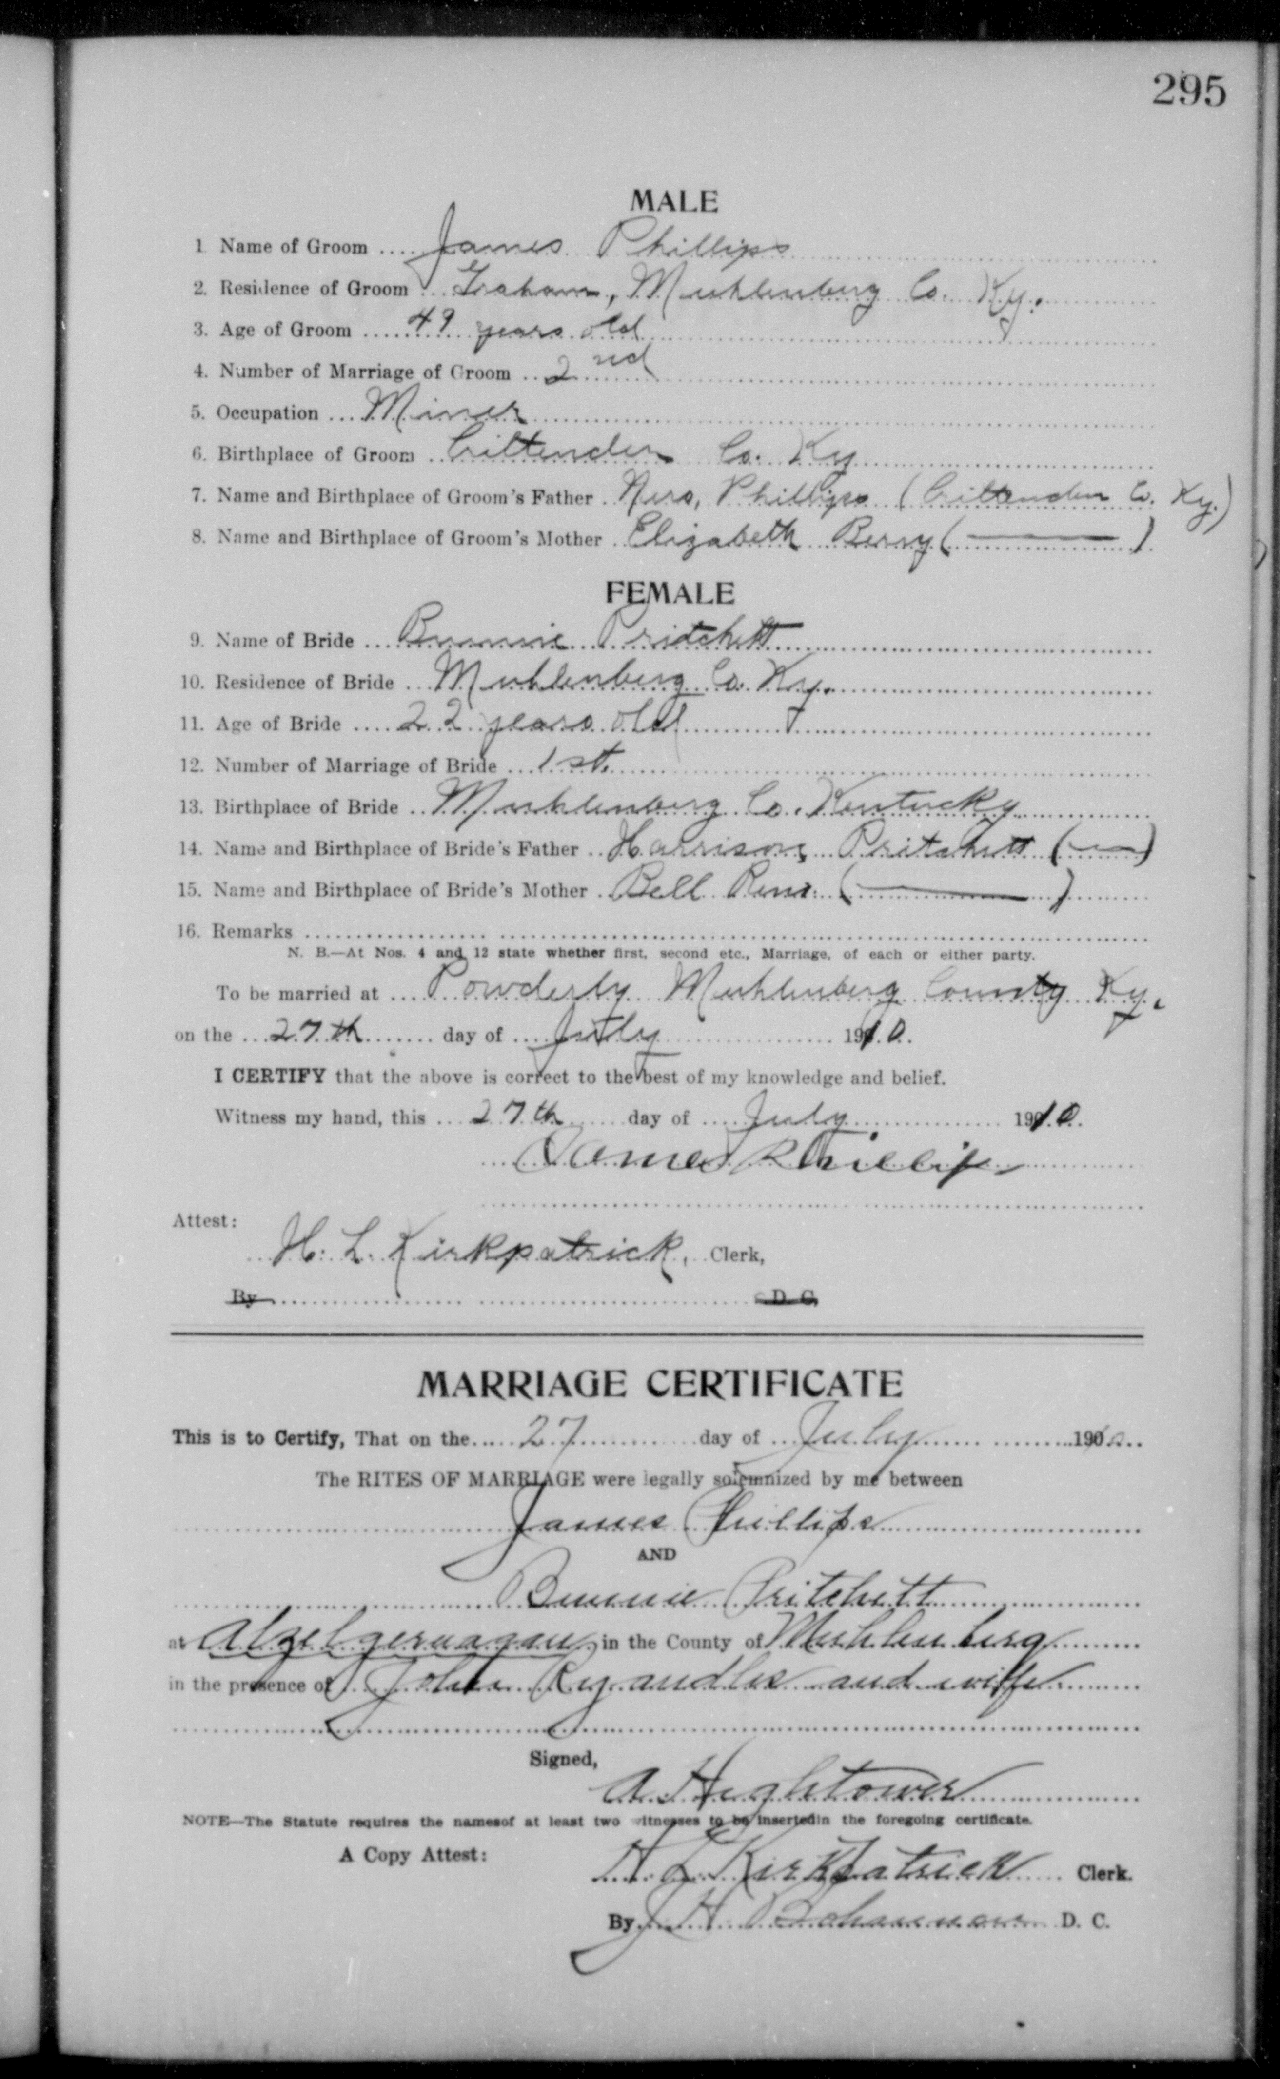 295
MALE
1 Name of Groom .... James Phillips
2. Residence of Groom .. Graham, Muhlenberg Co. Ky.
3. Age of Groom .... 49 years old
4. Number of Marriage of Groom .. 2nd
5. Occupation ... Miner
6. Birthplace of Groom .. Crittenden Co. Ky
7. Name and Birthplace of Groom's Father . Phillips (Crittenden Co. Ky.)
8. Name and Birthplace of Groom's Mother .. Elizabeth Berry ( — )
FEMALE
9. Name of Bride ... Bunnie Pritchett
10. Residence of Bride ... Muhlenberg Co. Ky.
11. Age of Bride .... 22 years old
12. Number of Marriage of Bride ... 1st.
13. Birthplace of Bride .. Muhlenberg Co. Kentucky
14. Name and Birthplace of Bride's Father .. Harrison Pritchett ( — )
15. Name and Birthplace of Bride's Mother . Bell Reno. ( — )
16. Remarks
N. B.—At Nos. 4 and 12 state whether first, second etc., Marriage, of each or either party.
To be married at ... Powderly Muhlenberg County Ky.
on the ... 27th ... day of ... July ... 1910.
I CERTIFY that the above is correct to the best of my knowledge and belief.
Witness my hand, this ... 27th ... day of ... July ... 1910.
James Phillips
Attest:
H. L. Kirkpatrick, Clerk,
By ... D. C.
MARRIAGE CERTIFICATE
This is to Certify, That on the ... 27 ... day of ... July ... 1910
The RITES OF MARRIAGE were legally solemnized by me between
James Phillips
AND
Bunnie Pritchett
at in the County of Muhlenberg
in the presence of John and wife
Signed,
A. Hightower
NOTE—The Statute requires the namesof at least two witnesses to be insertedin the foregoing certificate.
A Copy Attest:
H L Kirkpatrick Clerk.
By J H Bohannon D. C.